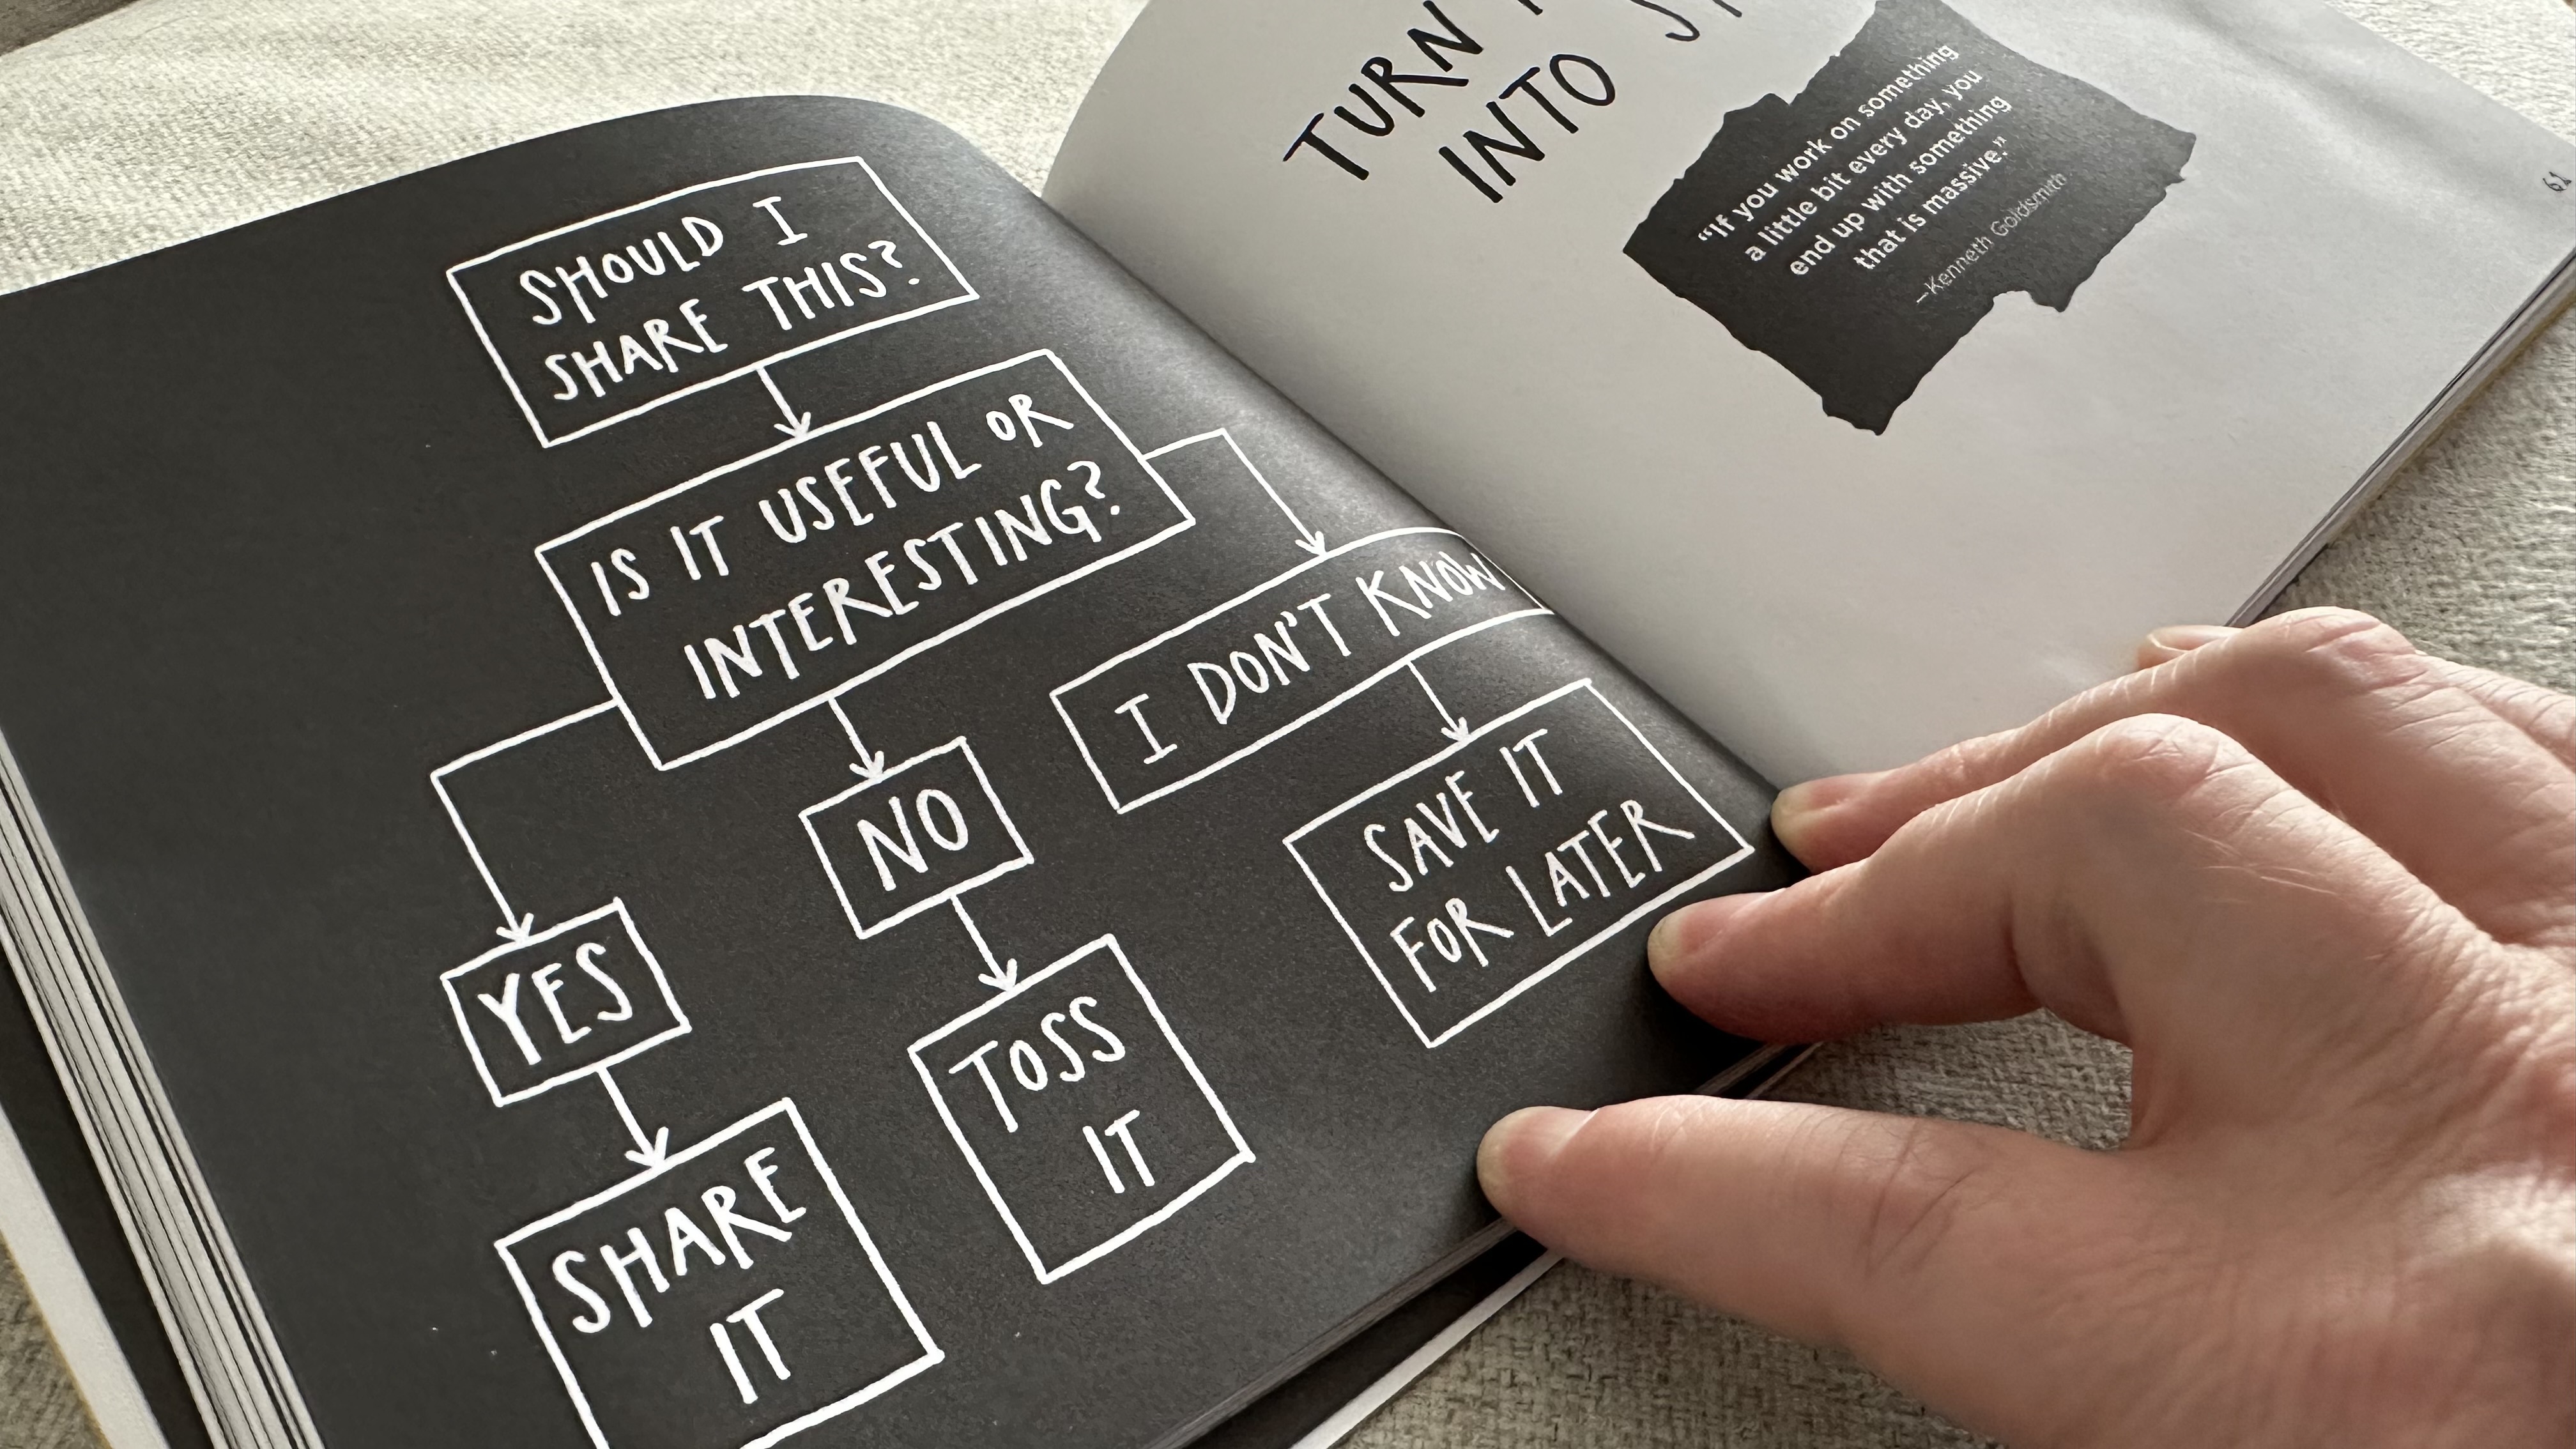 SHOULD I
SHARE THIS?
IS IT USEFUL OR
INTERESTING?
I DON'T KNOW
SAVE IT
FOR LATER
NO
TOSS
IT
YES
SHARE
IT
TURN
INTO
“If you work on something
a little bit every day, you
end up with something
that is massive.”
—Kenneth Goldsmith
61